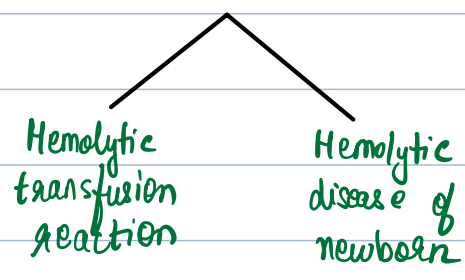 Hemolytic
transfusion
reaction
Hemolytic
disease of
newborn